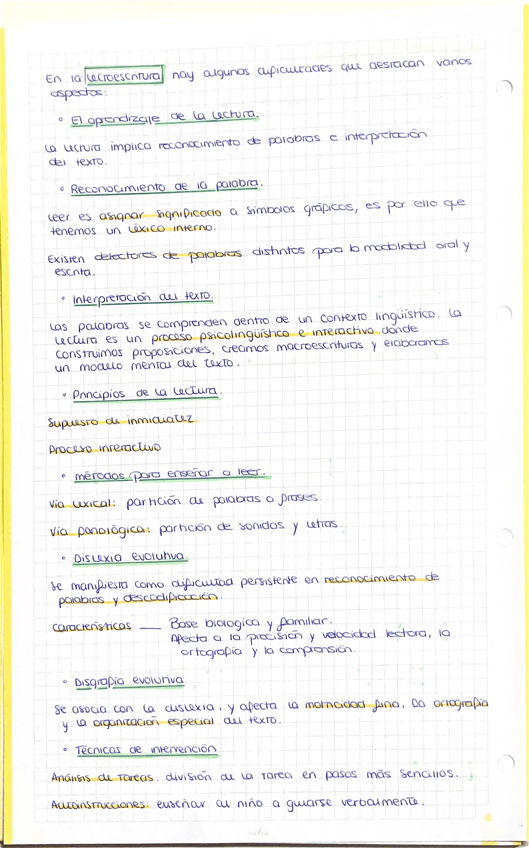 En la lectoescritura hay algunas dificultades que destacan varios
aspectos:
◦ El aprendizaje de la lectura.
La lectura implica reconocimiento de palabras e interpretación
del texto.
◦ Reconocimiento de la palabra.
Leer es asignar significado a símbolos gráficos, es por ello que
tenemos un léxico interno.
Existen detectores de palabras distintos para la modalidad oral y
escrita.
◦ Interpretación del texto.
Las palabras se comprenden dentro de un contexto lingüístico. La
lectura es un proceso psicolingüístico e interactivo donde
construimos proposiciones, creamos macroescrituras y elaboramos
un modelo mental del texto.
◦ Principios de la lectura.
Supuesto de inmidiatez
Proceso interactivo
◦ métodos para enseñar a leer.
Vía lexical: partición de palabras o frases.
Vía fonológica: partición de sonidos y letras.
◦ Dislexia evolutiva.
Se manifiesta como dificultad persistente en reconocimiento de
palabras y descodificación.
Características — Base biologica y familiar.
Afecta a la precisión y velocidad lectora, la
ortografía y la comprensión.
◦ Disgrafía evolutiva
Se asocia con la dislexia, y afecta la motricidad fina, la ortografía
y la organización especial del texto.
◦ Técnicas de intervención
Análisis de tareas: división de la tarea en pasos más sencillos.
Autoinstrucciones: enseñar al niño a guiarse verbalmente.